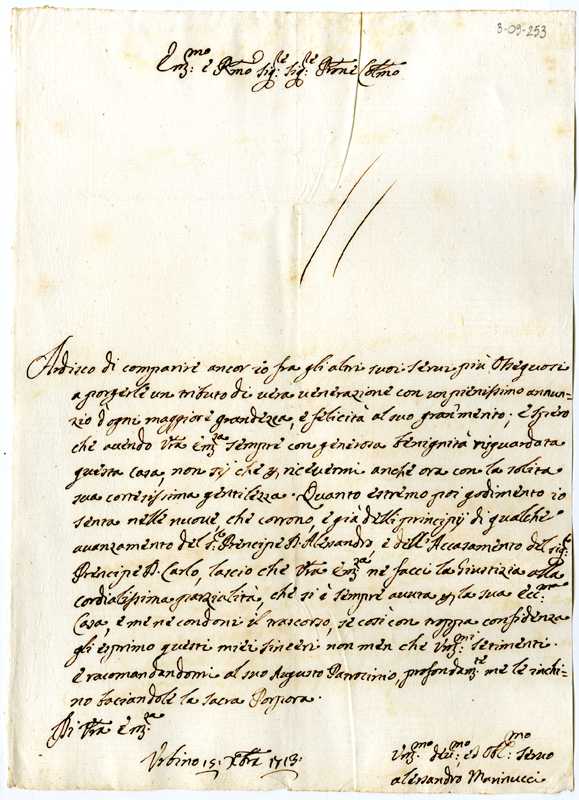 3-09-253
Em.mo e R.mo Sig.re Sig.re P.rone Col.mo
Ardisco di comparire ancor io fra gli altri suoi servi più ossequiosi
a porgerle un tributo di vera venerazione con un pienissimo annun=
zio d'ogni maggiore grandezza, e felicità al suo gran merito; e spero
che avendo V.tra Em.za sempre con generosa benignità riguardata
questa Casa, non sij che p ricevermi anche ora con la solita
sua cortesissima gentilezza. Quanto estremo poi godimento io
senta nelle nuove, che corrono, e già delli principij di qualche
avanzamento del S.r Principe D. Alesandro, e dell'Accasamento del Sig.r
Prencipe D. Carlo, lascio che V.tra Em.za ne facci la giustizia alla
cordialissima parzialità, che si è sempre avuta p la sua Ecc.ma
Casa, e me ne condoni il trascorso, se così con troppa confidenza
gli esprimo questi miei sinceri non men che um.mi setimenti.
e racomandandomi al suo Augusto Patrocinio, profondam.te me le inchi=
no baciandole la sacra Porpora.
Di V.tra Em.za
Urbino 15: Xbre 1713:
Um.mo dev.mo, ed Obl.mo Servo
Alessandro Marinucci